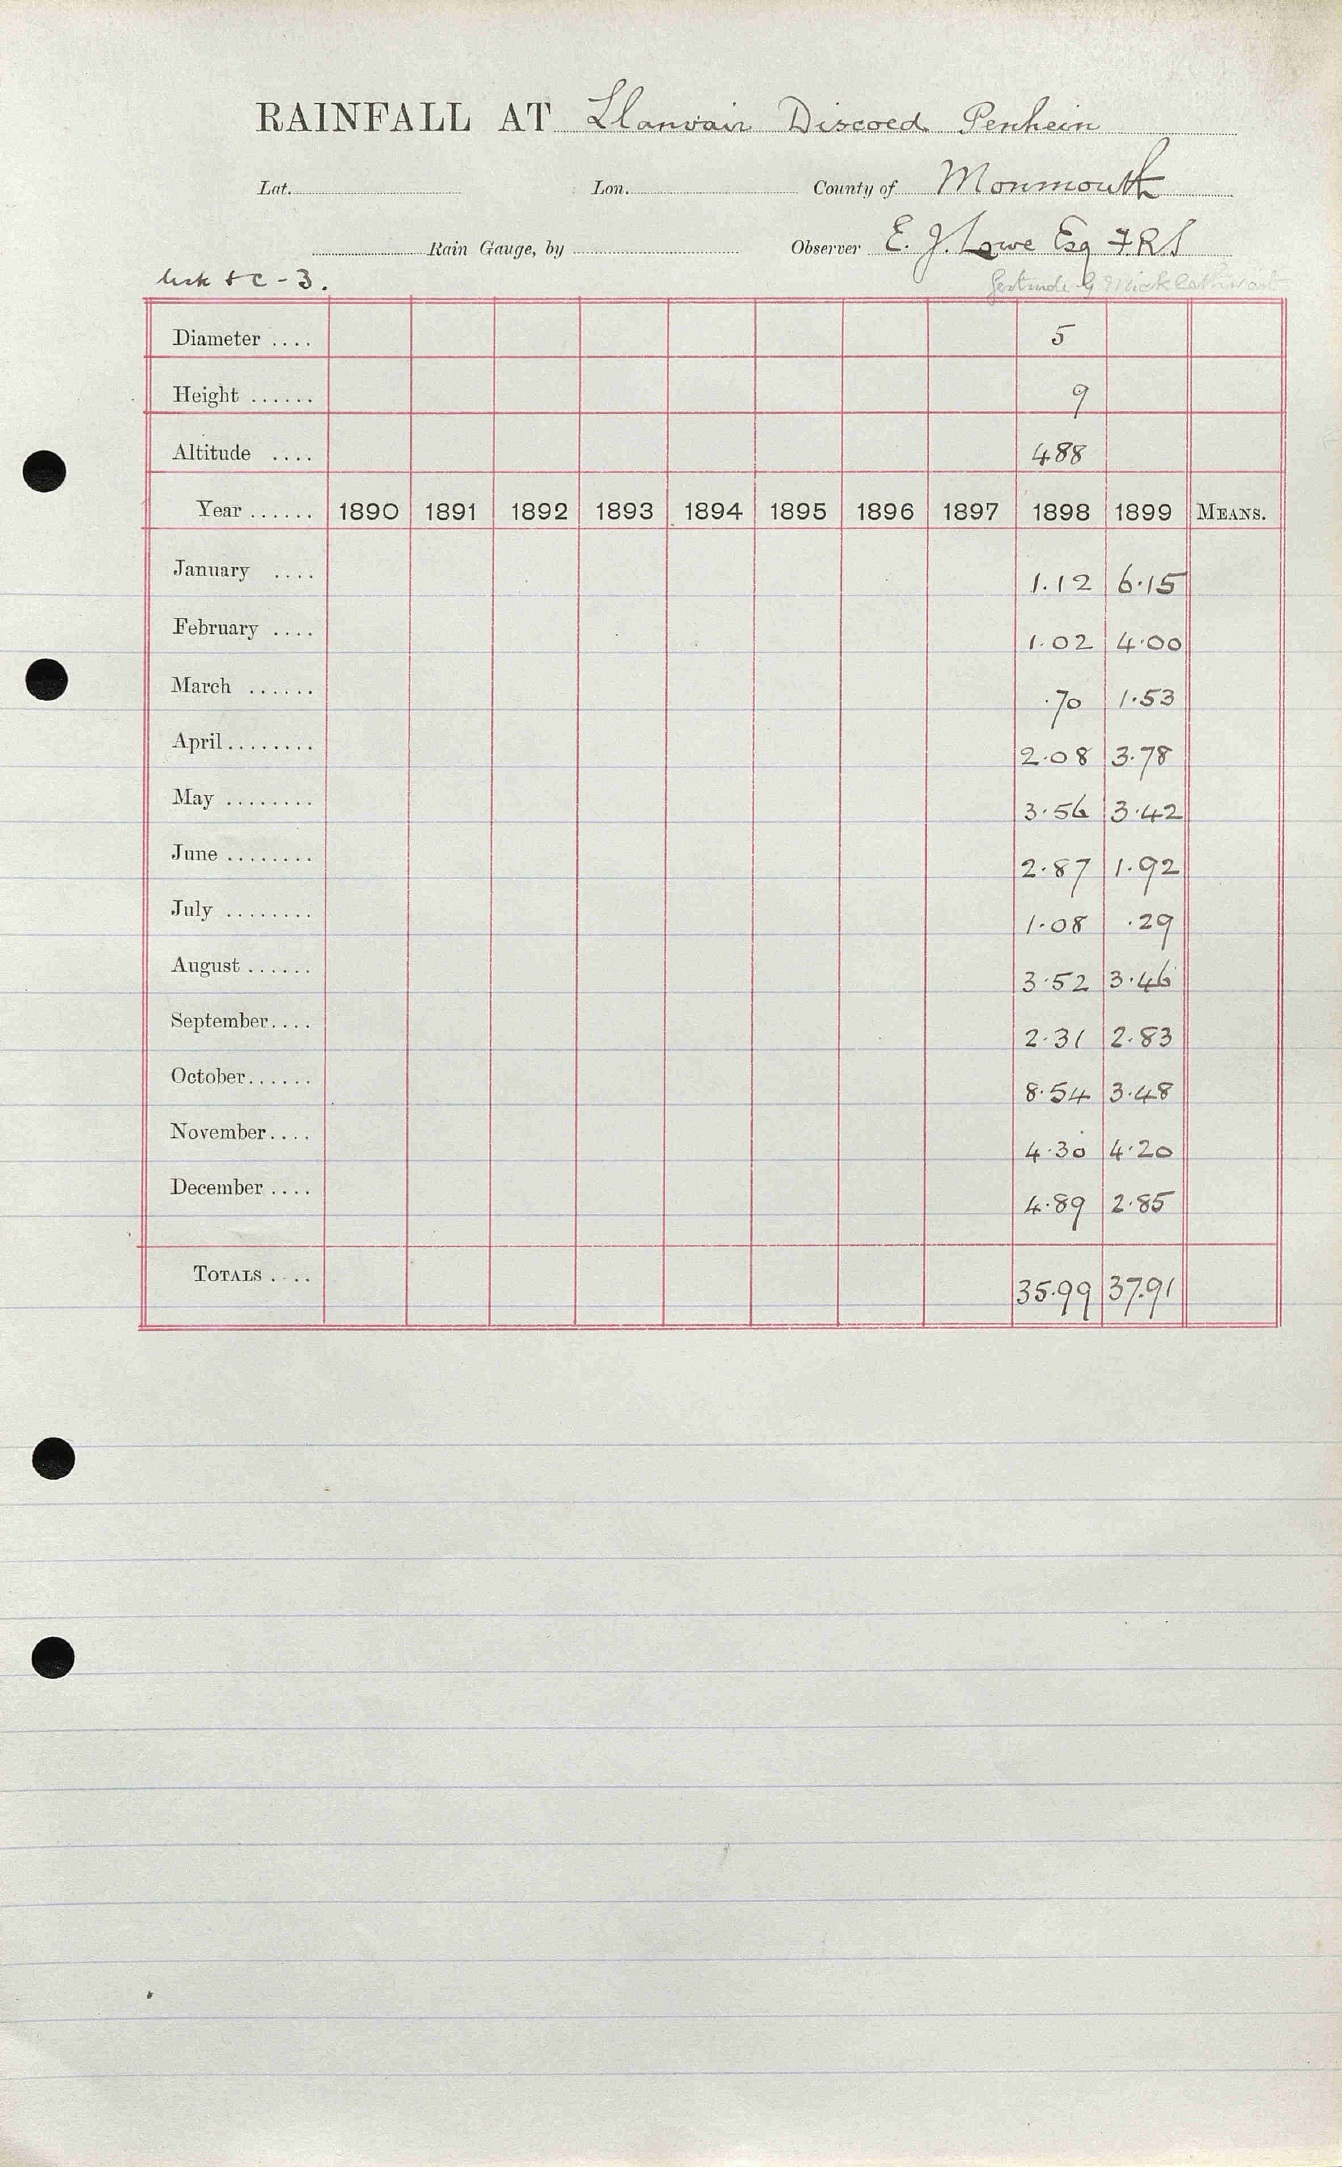 RAINFALL AT Llanvair Discoed Penhein
Lat. Lon. County of Monmouth
Rain Gauge, by Observer E. J. Lowe Esq F.R.S
Usk &c - 3.
Gertrude G Micklethwait
Diameter .... 5
Height ...... 9
Altitude .... 488
Year ...... 1890 1891 1892 1893 1894 1895 1896 1897 1898 1899 MEANS.
January .... 1.12 6.15
February .... 1.02 4.00
March ...... .70 1.53
April ........ 2.08 3.78
May ........ 3.56 3.42
June ........ 2.87 1.92
July ........ 1.08 .29
August ...... 3.52 3.46
September.... 2.31 2.83
October...... 8.54 3.48
November.... 4.30 4.20
December .... 4.89 2.85
TOTALS .... 35.99 37.91